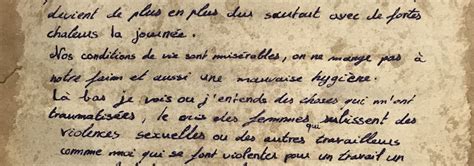 devient de plus en plus dur surtout avec de fortes
chaleurs la journée.
Nos conditions de vie sont misérables, on ne mange pas à
notre faim et aussi une mauvaise hygiène.
Là bas je vois ou j'entends des choses qui m'ont
traumatisées, le cris des femmes qui subissent des
violences sexuelles ou des autres travailleurs
comme moi qui se font violentés pour un travail un